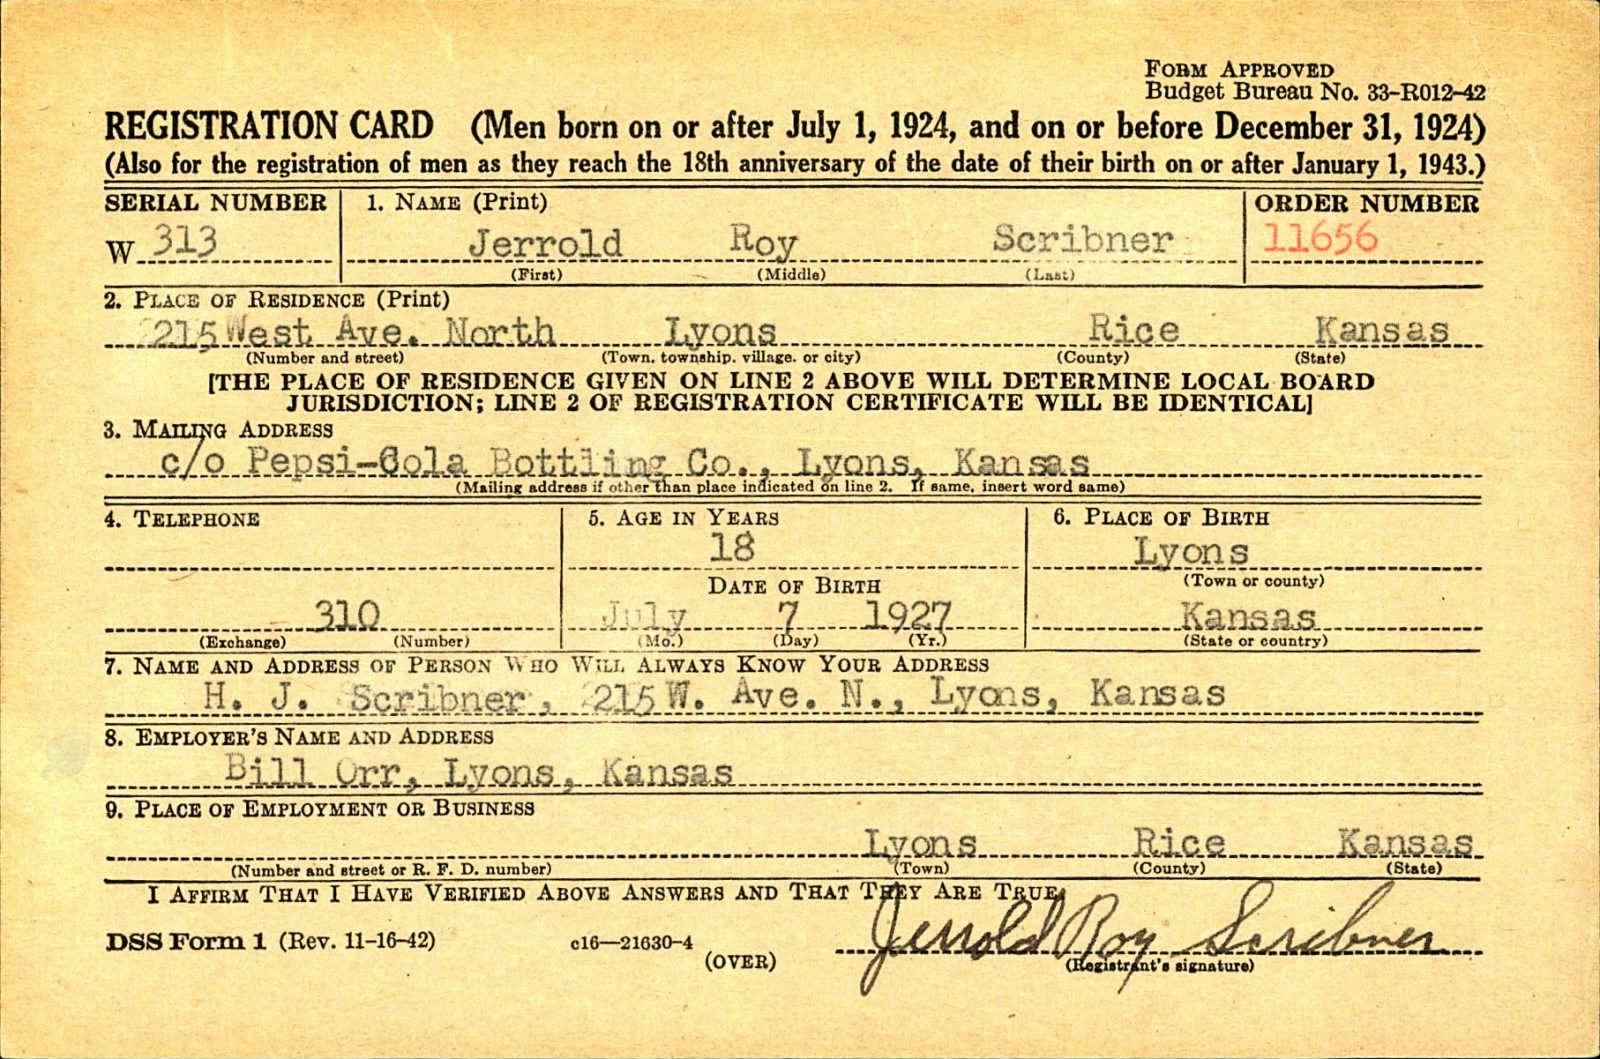 FORM APPROVED
Budget Bureau No. 33-R012-42
REGISTRATION CARD (Men born on or after July 1, 1924, and on or before December 31, 1924)
(Also for the registration of men as they reach the 18th anniversary of the date of their birth on or after January 1, 1943.)
SERIAL NUMBER 1. NAME (Print) ORDER NUMBER
W 313 Jerrold Roy Scribner 11656
(First) (Middle) (Last)
2. PLACE OF RESIDENCE (Print)
215 West Ave. North Lyons Rice Kansas
(Number and street) (Town, township, village, or city) (County) (State)
[THE PLACE OF RESIDENCE GIVEN ON LINE 2 ABOVE WILL DETERMINE LOCAL BOARD
JURISDICTION; LINE 2 OF REGISTRATION CERTIFICATE WILL BE IDENTICAL]
3. MAILING ADDRESS
c/o Pepsi-Cola Bottling Co., Lyons, Kansas
(Mailing address if other than place indicated on line 2. If same, insert word same)
4. TELEPHONE 5. AGE IN YEARS 6. PLACE OF BIRTH
18 Lyons
DATE OF BIRTH (Town or county)
310 July 7 1927 Kansas
(Exchange) (Number) (Mo.) (Day) (Yr.) (State or country)
7. NAME AND ADDRESS OF PERSON WHO WILL ALWAYS KNOW YOUR ADDRESS
H. J. Scribner, 215 W. Ave. N., Lyons, Kansas
8. EMPLOYER'S NAME AND ADDRESS
Bill Orr, Lyons, Kansas
9. PLACE OF EMPLOYMENT OR BUSINESS
Lyons Rice Kansas
(Number and street or R. F. D. number) (Town) (County) (State)
I AFFIRM THAT I HAVE VERIFIED ABOVE ANSWERS AND THAT THEY ARE TRUE.
DSS Form 1 (Rev. 11-16-42) c16—21630-4 Jerrold Roy Scribner
(OVER) (Registrant's signature)